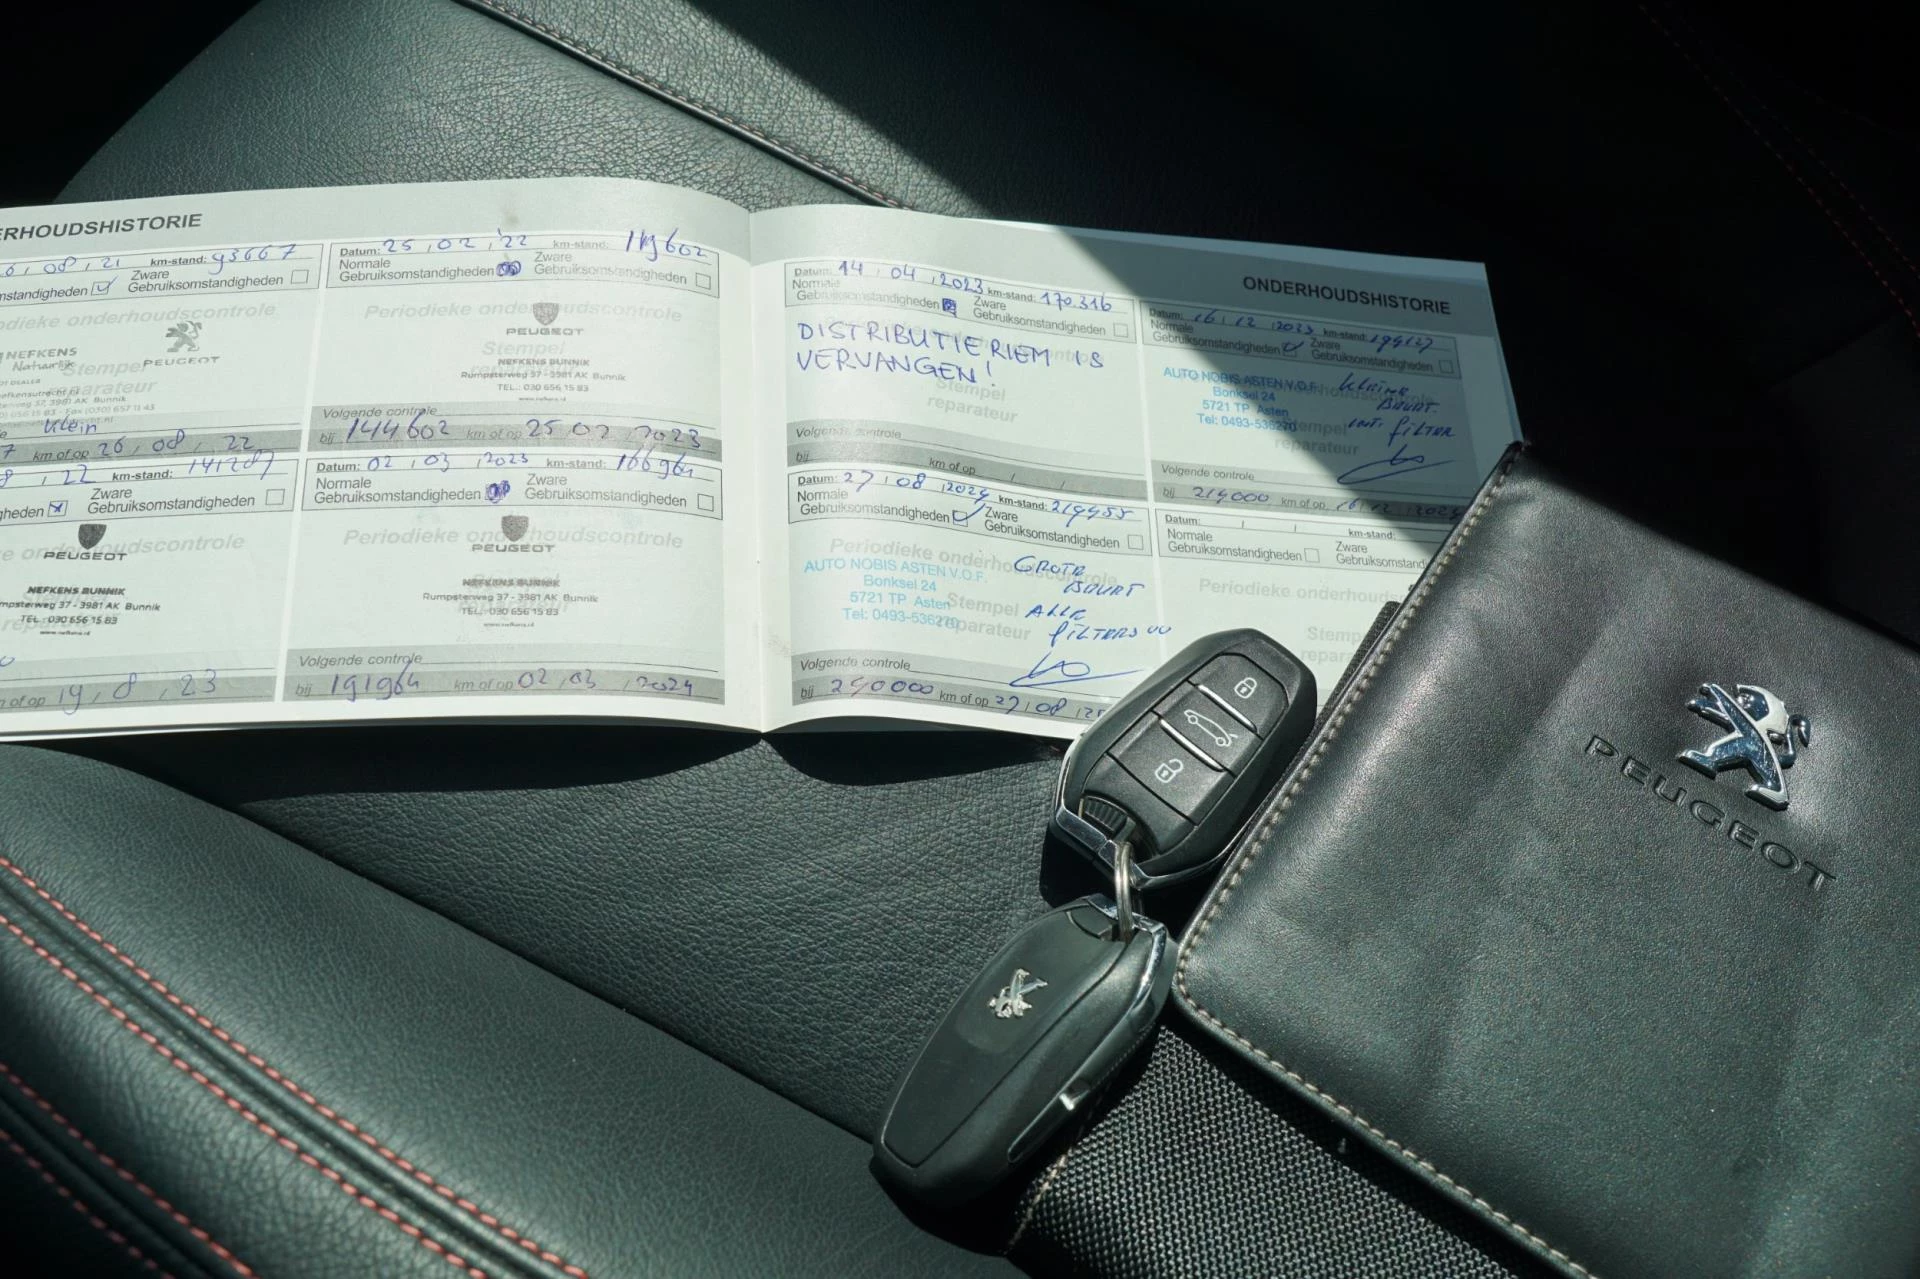 ERHOUDSHISTORIE
6 / 08 / 21 km-stand: 93667
standigheden Zware
Gebruiksomstandigheden
dieke onderhoudscontrole
NEFKENS
Natuurlijk
PEUGEOT
Stempel
reparateur
OT DEALER
efkensutrecht.nl
erweg 37, 3981 AK Bunnik
0) 656 15 83 - Fax (030) 657 11 43
Klein
7 km of op 26 / 08 / 22
Datum: 25 / 02 / '22 km-stand: 119602
Normale
Gebruiksomstandigheden Zware
Gebruiksomstandigheden
Periodieke onderhoudscontrole
PEUGEOT
Stempel
reparateur
NEFKENS BUNNIK
Rumpsterweg 37 - 3981 AK Bunnik
TEL.: 030 656 15 83
www.nefkens.nl
Volgende controle
bij 144602 km of op 25 / 02 / 2023
8 / 22 km-stand: 141287
gheden Zware
Gebruiksomstandigheden
ke onderhoudscontrole
PEUGEOT
NEFKENS BUNNIK
mpsterweg 37 - 3981 AK Bunnik
TEL.: 030 656 15 83
www.nefkens.nl
m of op 19 / 8 / 23
Datum: 02 / 03 / 2023 km-stand: 166964
Normale
Gebruiksomstandigheden Zware
Gebruiksomstandigheden
Periodieke onderhoudscontrole
PEUGEOT
Stempel
reparateur
NEFKENS BUNNIK
Rumpsterweg 37 - 3981 AK Bunnik
TEL.: 030 656 15 83
www.nefkens.nl
Volgende controle
bij 191964 km of op 02 / 03 / 2024
ONDERHOUDSHISTORIE
Datum: 14 / 04 / 2023 km-stand: 170.316
Normale
Gebruiksomstandigheden Zware
Gebruiksomstandigheden
DISTRIBUTIE RIEM IS
VERVANGEN!
Stempel
reparateur
Volgende controle
bij km of op / /
Datum: 16 / 12 / 2023 km-stand:
Normale
Gebruiksomstandigheden Zware
Gebruiksomstandigheden
AUTO NOBIS ASTEN V.O.F.
Bonksel 24
5721 TP Asten
Tel: 0493-536270
KLEINE
BEURT
FILTER
Stempel
reparateur
Volgende controle
bij 219000 km of op 16 / 12 / 2024
Datum: 27 / 08 / 2024 km-stand: 219455
Normale
Gebruiksomstandigheden Zware
Gebruiksomstandigheden
Periodieke onderhoudscontrole
AUTO NOBIS ASTEN V.O.F.
Bonksel 24
5721 TP Asten
Tel: 0493-536270
GROTE
BEURT
ALLE
FILTERS
Stempel
reparateur
Volgende controle
bij 240000 km of op 27 / 08 / 2
Datum: / / km-stand:
Normale
Gebruiksomstandigheden Zware
Gebruiksomstandi
Periodieke onderhouds
Stemp
repara
PEUGEOT